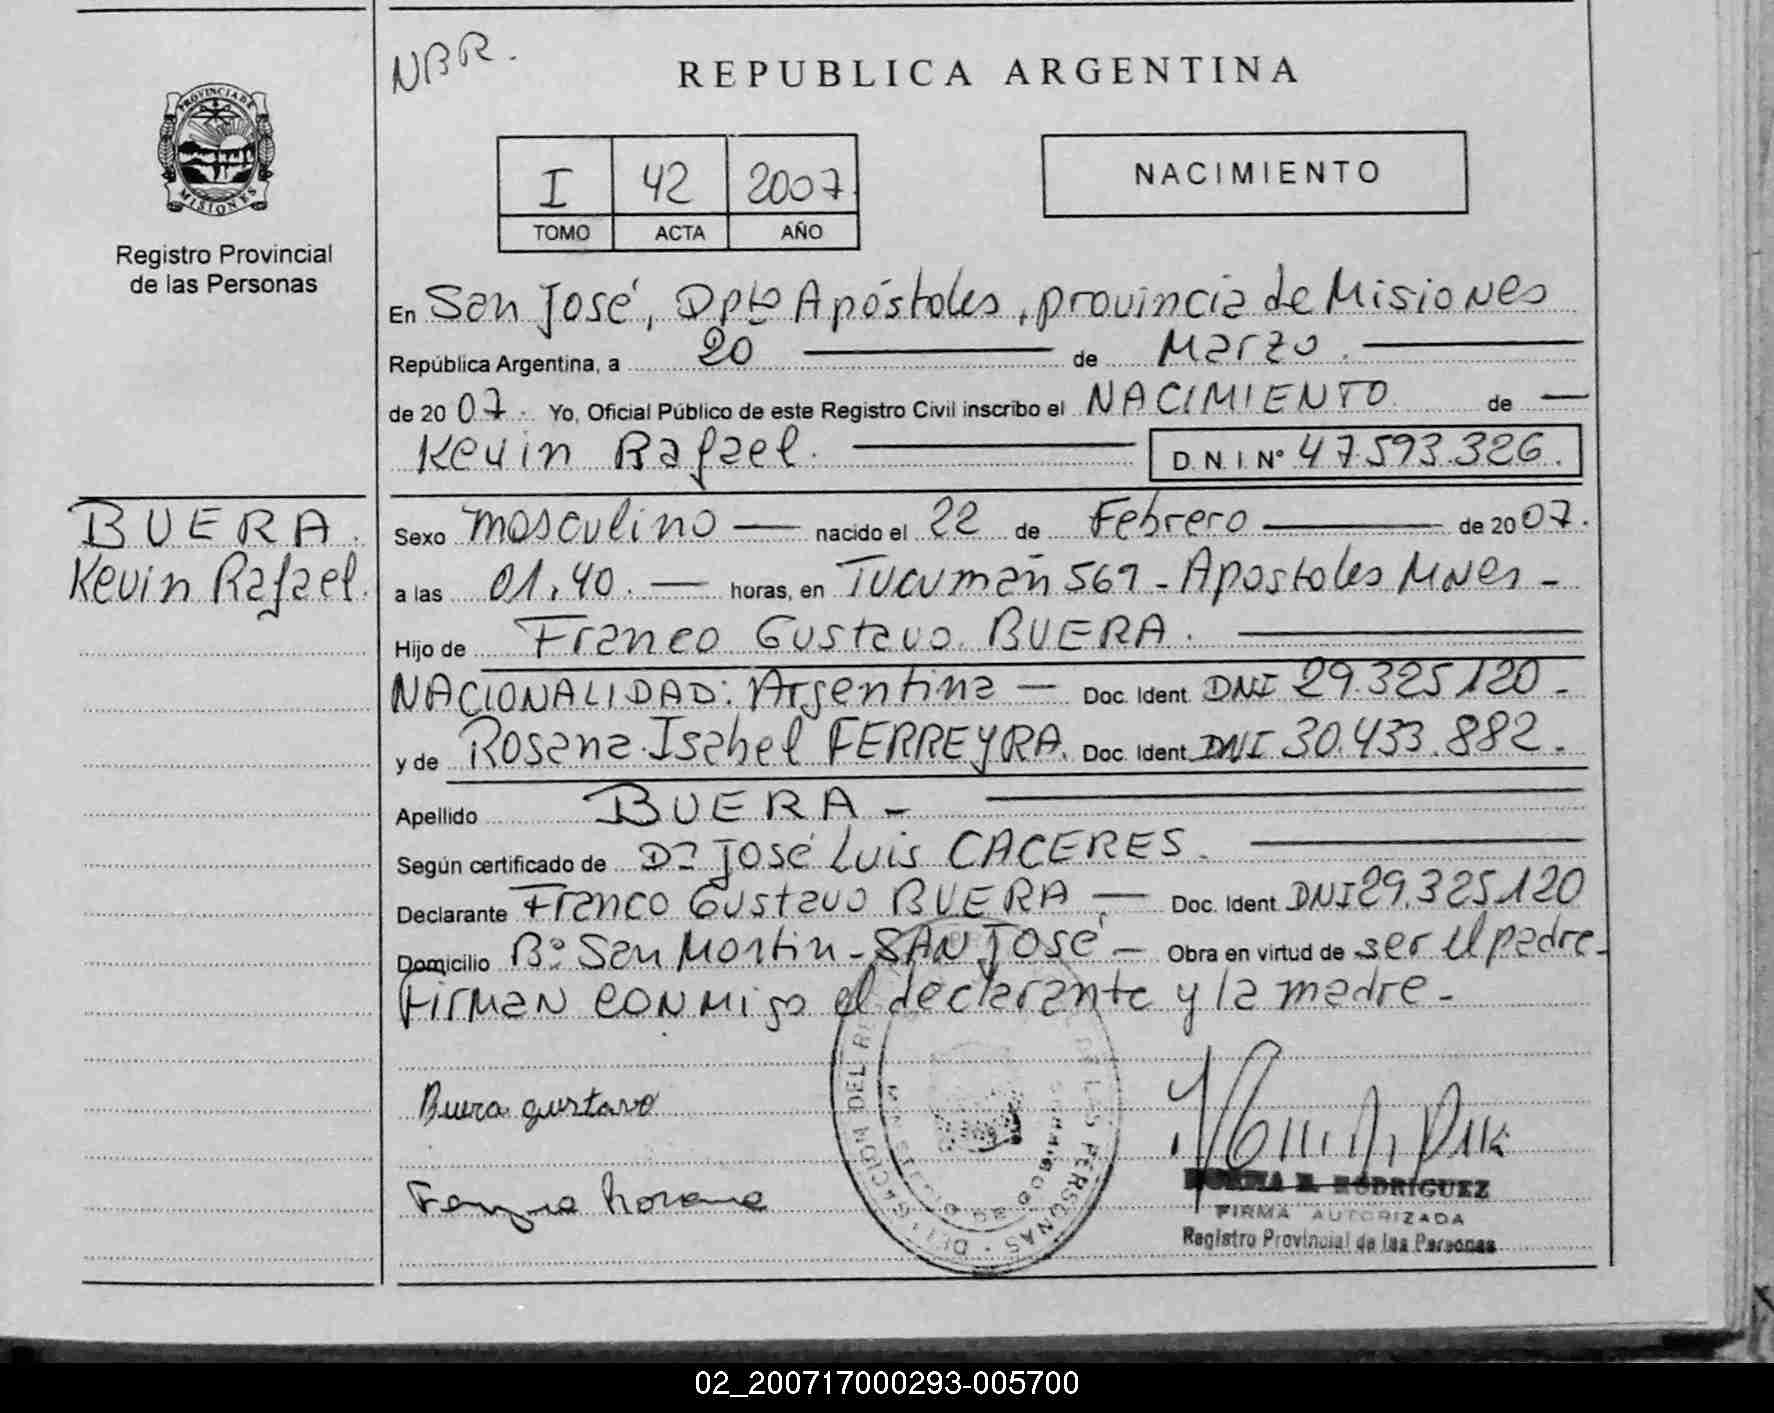 NBR.
REPUBLICA ARGENTINA
PROVINCIA DE
MISIONES
Registro Provincial
de las Personas
I 42 2007
TOMO ACTA AÑO
NACIMIENTO
En San José, Dpto Apóstoles, provincia de Misiones
República Argentina, a 20 de Marzo.
de 20 07. Yo, Oficial Público de este Registro Civil inscribo el NACIMIENTO de
Kevin Rafael. D.N.I.N° 47.593.326.
BUERA.
Kevin Rafael.
Sexo masculino nacido el 22 de Febrero de 20 07.
a las 01,40. horas, en Tucumán 569 - Apostoles Mnes -
Hijo de Franco Gustavo BUERA.
NACIONALIDAD: Argentina - Doc. Ident. DNI 29.325120 -
y de Rosana Isabel FERREYRA. Doc. Ident. DNI 30.433.882 -
Apellido BUERA -
Según certificado de Dr José Luis CACERES.
Declarante Franco Gustavo BUERA - Doc. Ident. DNI 29.325120
Domicilio B° San Martin - SAN JOSÉ - Obra en virtud de ser el padre -
Firman conmigo el declarante y la madre -
Buera gustavo
DEL DE LAS PERSONAS
RODRIGUEZ
FIRMA AUTORIZADA
Registro Provincial de las Personas
02_200717000293-005700